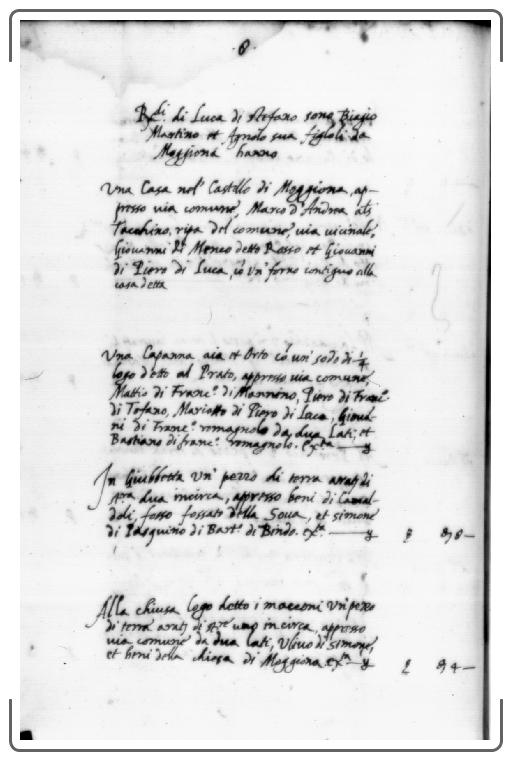 8.
Rdi. di Luca di Stefano sono Biagio
Martino et Agnolo sua figloli da
Moggiona hanno
Una Casa nel Castello di Moggiona, ap-
presso via comune, Marco d'Andrea als
Tacchino, ripa del comune, via vicinale,
Giovanni di Menco detto Rosso et Giovanni
di Piero di Luca, cō un forno contiguo alla
casa detta
Una Capanna aia et Orto cō un sodo di 1/4
logo detto al Prato, appresso via comune,
Mattio di Franc.º di Mannino, Piero di Franc.º
di Tofano, Mariotto di Piero di Luca, Giova-
ni di Franc.º romagnolo da dua Lati, et
Bastiano di franc.º romagnolo. exta
In Giubbetta un pezzo di terra arat.
dua incirca, appresso beni di Camal-
doli, fosso fossato della Sova, et simone
di Pasquino di Bart.º di Bindo. exta
Alla chiusa logo detto i macconi un pezzo
di terra arat. di uno incirca, appresso
via comune da dua lati, Ulivo di simone,
et beni della chiesa di Moggiona. exta